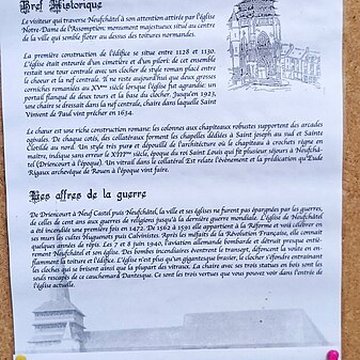 Bref Historique
Le visiteur qui traverse Neufchâtel à son attention attirée par l'église
Notre-Dame de l'Assomption: monument majestueux situé au centre
de la ville qui semble flotter au dessus des toitures normandes.
La première construction de l'édifice se situe entre 1128 et 1130.
L'église était entourée d'un cimetière et d'un pilori: de cet ensemble
restait une tour centrale avec un clocher de style roman placé entre
le chœur et la nef centrale. Il ne reste aujourd'hui que deux grosses
corniches remaniées au XVème siècle lorsque l'église fut agrandie: un
portail flanqué de deux tours et la base du clocher. Jusqu'en 1923,
une chaire se dressait dans la nef centrale, chaire dans laquelle Saint
Vincent de Paul vint prêcher en 1634.
Le chœur est une riche construction romane: les colonnes aux chapiteaux robustes supportent des arcades
ogivales. De chaque cotés, des collatéraux forment les chapelles dédiées à Saint Joseph au sud et Sainte
Clotilde au nord. Un style très pur et dépouillé de l'architecture où le chapiteau à crochets règne en
maitre, indique sans erreur le XIIIème siècle, époque du roi Saint Louis qui fit plusieurs séjours à Neufchâ-
tel (Driencourt à l'époque). Un vitrail dans le collatéral Est relate l'évènement et la prédication qu'Eude
Rigaux archevêque de Rouen à l'époque vint faire.
Les affres de la guerre
De Driencourt à Neuf Castel puis Neufchâtel, la ville et ses églises ne furent pas épargnées par les guerres,
de celles de cent ans aux guerres de religions jusqu'à la dernière guerre mondiale. L'église de Neufchâtel
a été incendiée une première fois en 1472. De 1562 à 1591 elle appartient à la Réforme et voit célébrer en
ses murs les cultes Huguenots puis Calvinistes. Après les méfaits de la Révolution Française, elle connait
quelques années de répis. Les 7 et 8 juin 1940, l'aviation allemande bombarde et détruit presque entiè-
rement Neufchâtel et son église. Des bombes incendiaires éventrent le transept, défoncent la voûte en-
flamment la toiture et l'édifice. L'église n'est plus qu'un gigantesque brasier, le clocher s'effondre entrainant
les cloches qui se brisent ainsi que la plupart des vitraux. La chaire avec ses trois statues en bois sont les
seuls rescapés de ce cauchemard Dantesque. Ce sont les trois vertus que vous pouvez voir dans l'entrée de
l'église actuelle.